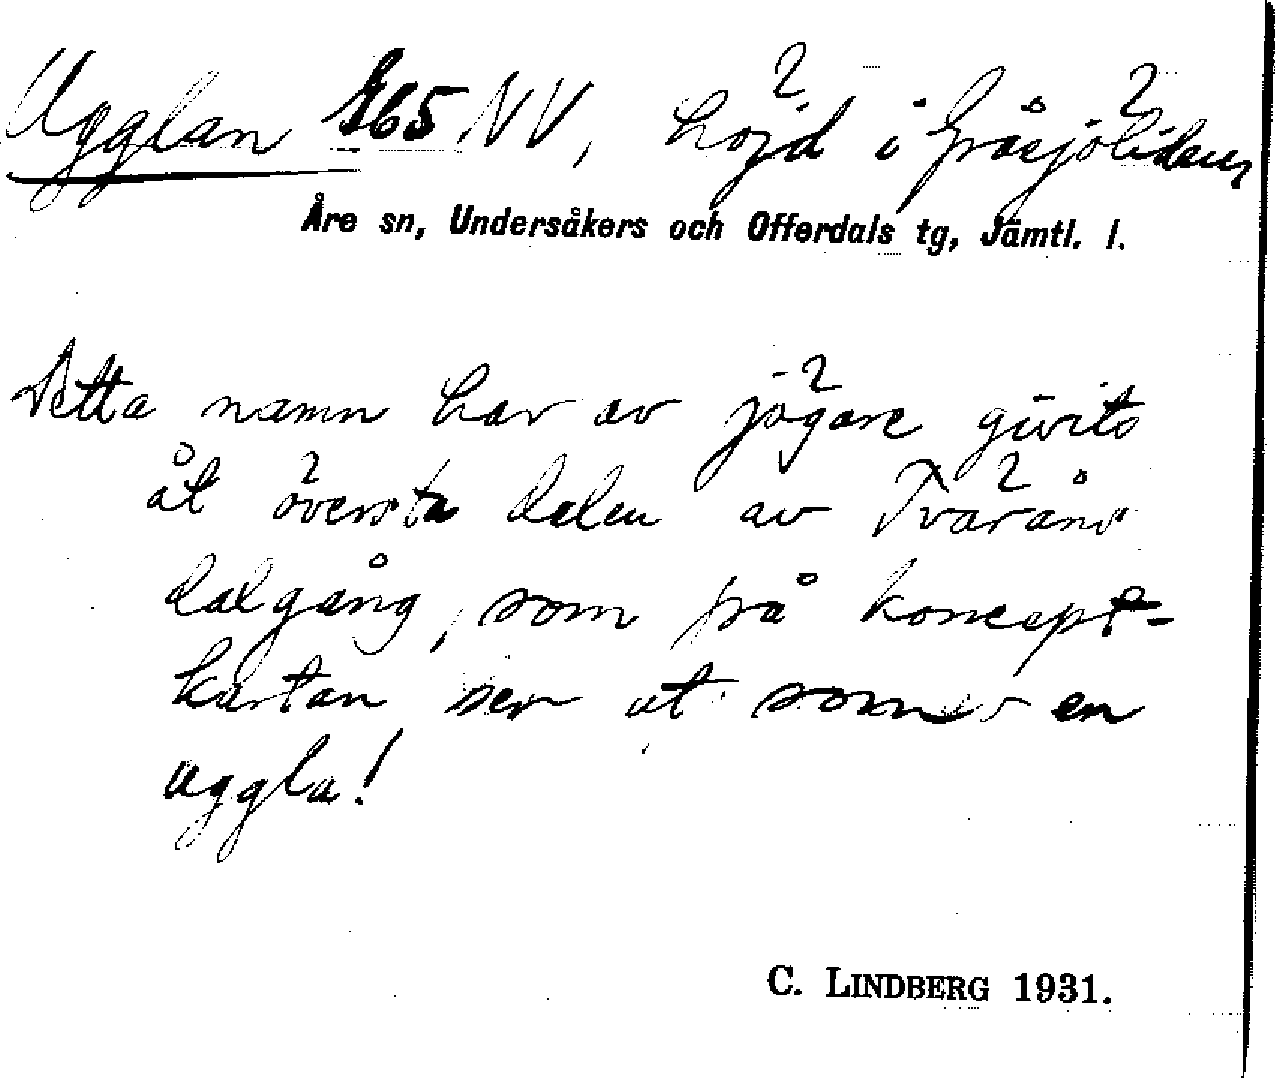 Ugglan 265 NV, höjd i Gråsjöliden,
Åre sn, Undersåkers och Offerdals tg, Jämtl. l.
Detta namn har av jägare givits
åt översta delen av Tvåråns
dalgång, som på koncept-
kartan ser ut som en
uggla!
C. LINDBERG 1931.